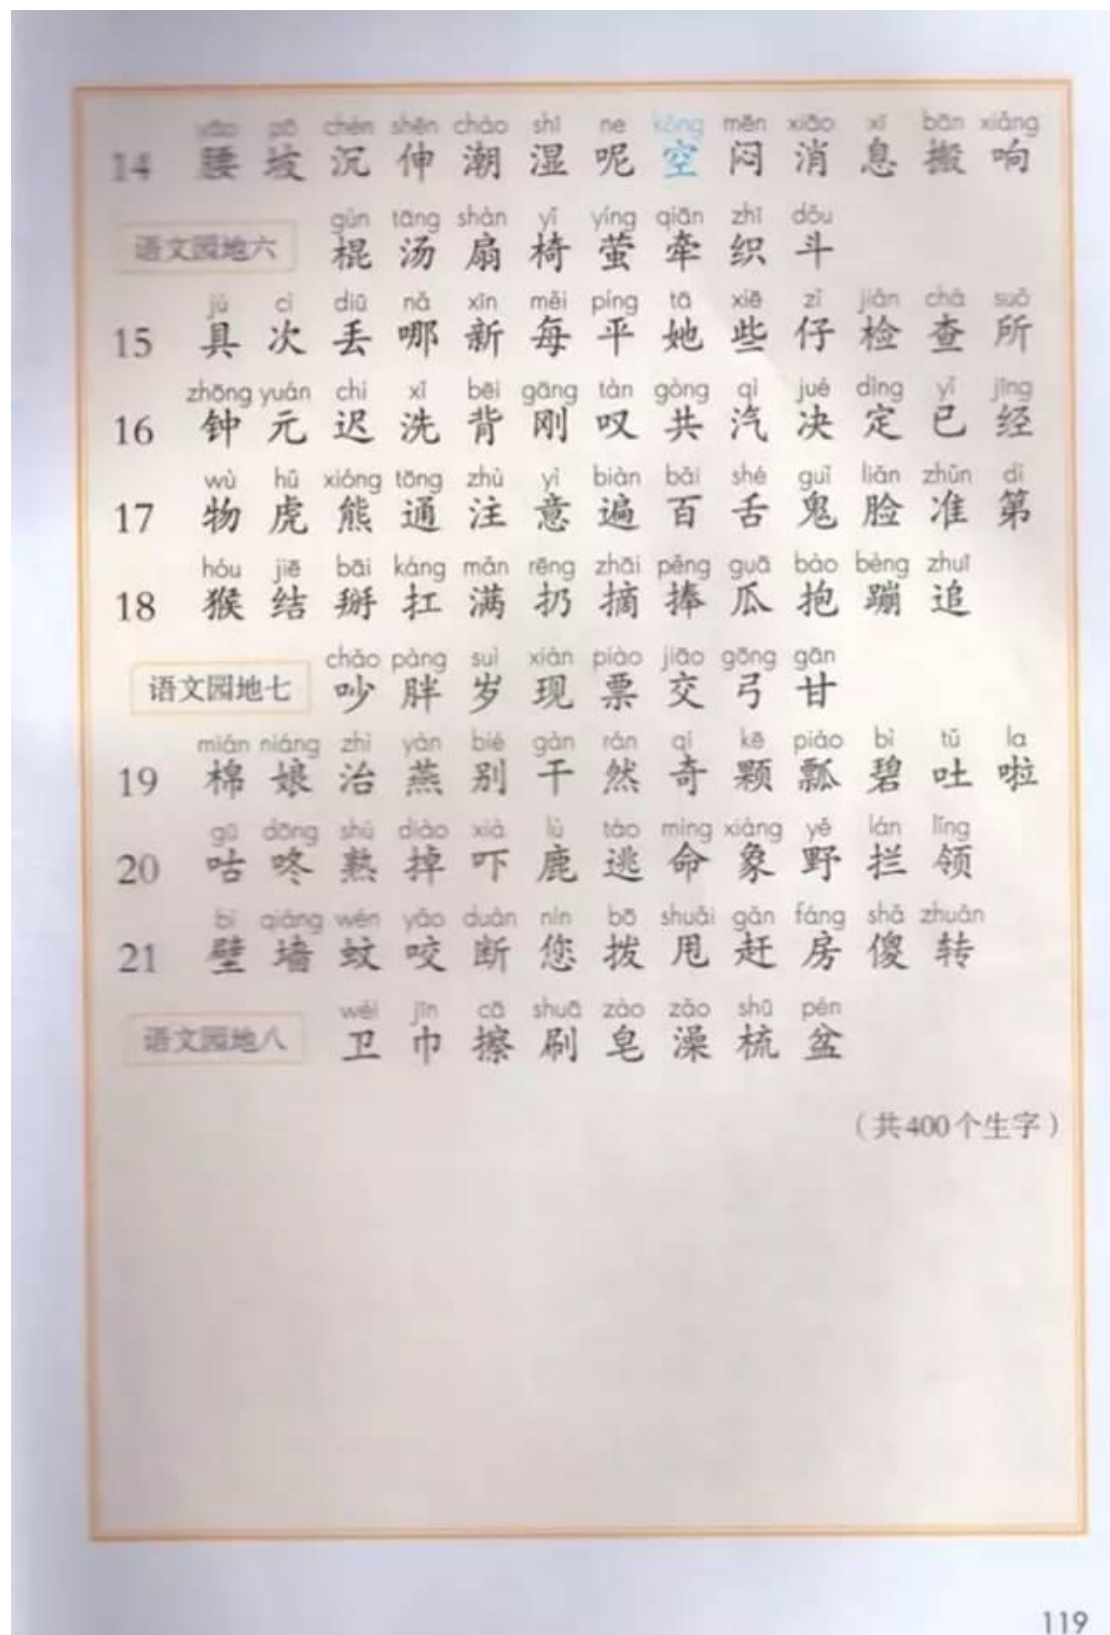 yāo pō chén shēn cháo shī ne kòng mēn xiāo xi bān xiǎng
14 腰 坡 沉 伸 潮 湿 呢 空 闷 消 息 搬 响
gùn tāng shàn yǐ yíng qiān zhī dǒu
语文园地六 棍 汤 扇 椅 萤 牵 织 斗
jù cì diū nǎ xīn měi píng tā xiē zǐ jiǎn chá suǒ
15 具 次 丢 哪 新 每 平 她 些 仔 检 查 所
zhōng yuán chí xǐ bēi gāng tàn gòng qì jué dìng yǐ jīng
16 钟 元 迟 洗 背 刚 叹 共 汽 决 定 已 经
wù hǔ xióng tōng zhù yì biàn bǎi shé guǐ liǎn zhǔn dì
17 物 虎 熊 通 注 意 遍 百 舌 鬼 脸 准 第
hóu jiē bāi káng mǎn rēng zhāi pěng guā bào bèng zhuī
18 猴 结 掰 扛 满 扔 摘 捧 瓜 抱 蹦 追
chǎo pàng suì xiàn piào jiāo gōng gān
语文园地七 吵 胖 岁 现 票 交 弓 甘
mián niáng zhì yàn bié gàn rán qí kē piáo bì tǔ la
19 棉 娘 治 燕 别 干 然 奇 颗 瓢 碧 吐 啦
gū dōng shú diào xià lù táo mìng xiàng yě lán lǐng
20 咕 咚 熟 掉 吓 鹿 逃 命 象 野 拦 领
bì qiáng wén yǎo duàn nín bō shuǎi gǎn fáng shǎ zhuǎn
21 壁 墙 蚊 咬 断 您 拨 甩 赶 房 傻 转
wèi jīn cā shuā zào zǎo shū pén
语文园地八 卫 巾 擦 刷 皂 澡 梳 盆
（共400个生字）
119